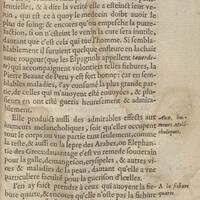 lentielles, & à dire la verité elle a esteinct leur ve-
nin, qui est ce à quoy le medecin doibt auoir le
plus prins de soing; & encores qu'on empesche la putre-
faction, si on n'esteinct le venin la cure sera inutile,
d'autant que c'est cela qui tue l'homme. Si sembla-
blement il suruient quelque enfleure en la chair
auec rougeur (que les Espagnols appellent
) qui accompaignent volontiers telles fieures, la
Pierre Bezaar de Peru y est fort bonne: car en sem-
blables maladies, i'ay consumé la plus grand par-
tie de celles qui m'auoyent esté enuoyées, & plu-
sieurs en ont esté gueris heureusement & admira-
blement.
Elle produict aussi des admirables effects aux
humeurs melancholiques, soit qu'elles occupent
tout le corps ou vne partie tant seulement, comme
la teste, & aussi en la lepre des Arabes, ou Elephan-
tie des Grecz: dauantage c'est vn remede souuerain
pour la galle, demangeson, erysipeles, & autres vi-
ces & maladies de la peau, dautant qu'elle a vne
particuliere faculté pour la question d'icelles.
I'en ay faict prendre à ceux qui auoyent la fie-
bure quarte, & encores qu'elle n'oste pas la fiebure
Aux hu-
meurs melā-
choliques.
A la fiebure
quarte.